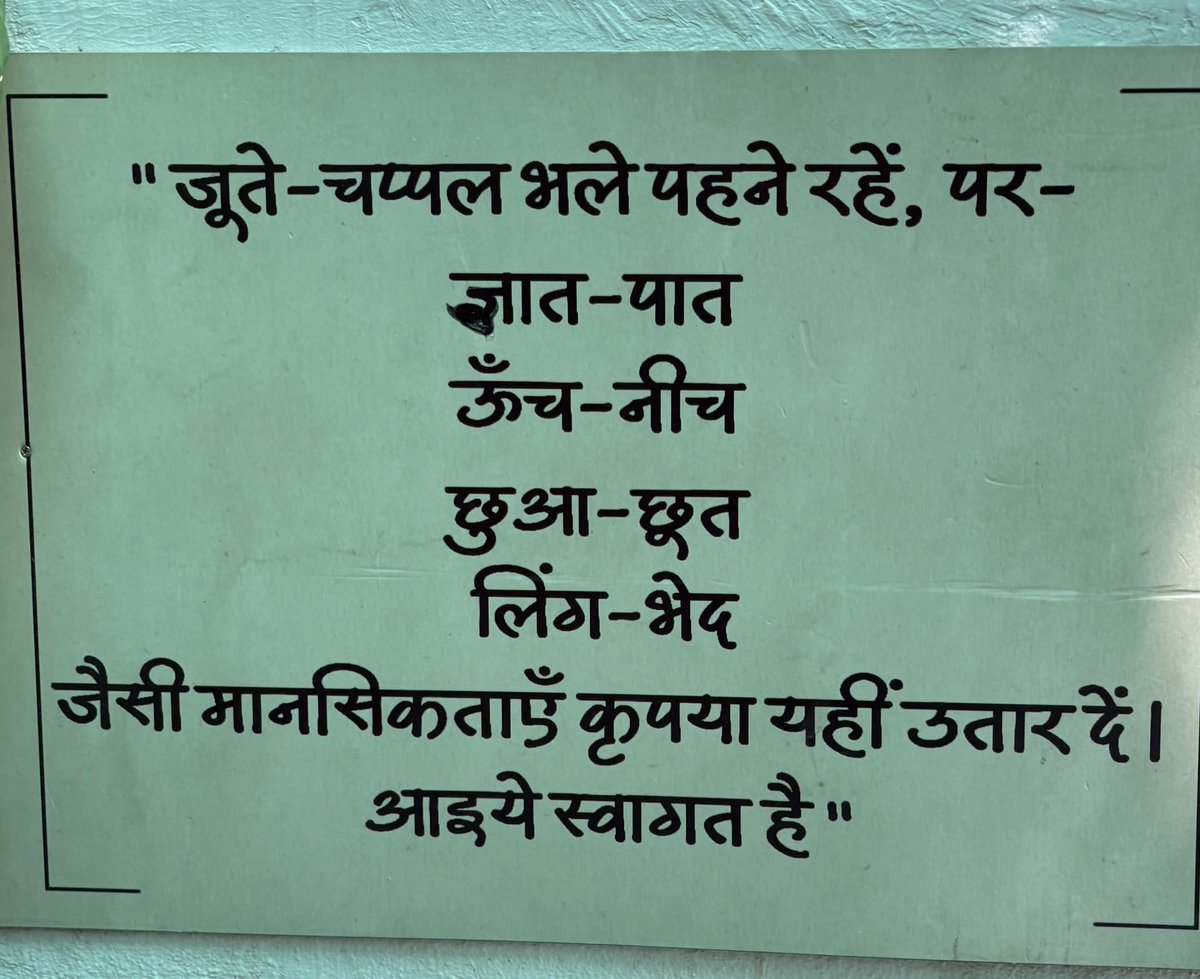 " जूते-चप्पल भले पहने रहें, पर-
ज्ञात-पात
ऊँच-नीच
छुआ-छूत
लिंग-भेद
जैसी मानसिकताएँ कृपया यहीं उतार दें।
आइये स्वागत है "